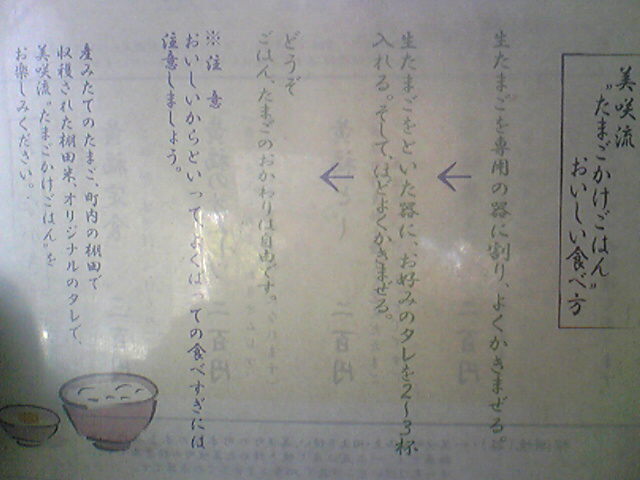 美咲流
“たまごかけごはん”
おいしい食べ方
生たまごを専用の器に割り、よくかきまぜる。
生たまごをといた器に、お好みのタレを2〜3杯
入れる。そして、ほどよくかきまぜる。
どうぞ
ごはん、たまごのおかわりは自由です。
※注意
おいしいからといって、よくばっての食べすぎには
注意しましょう。
産みたてのたまご、町内の棚田で
収穫された棚田米、オリジナルのタレで、
美咲流“たまごかけごはん”を
お楽しみください。